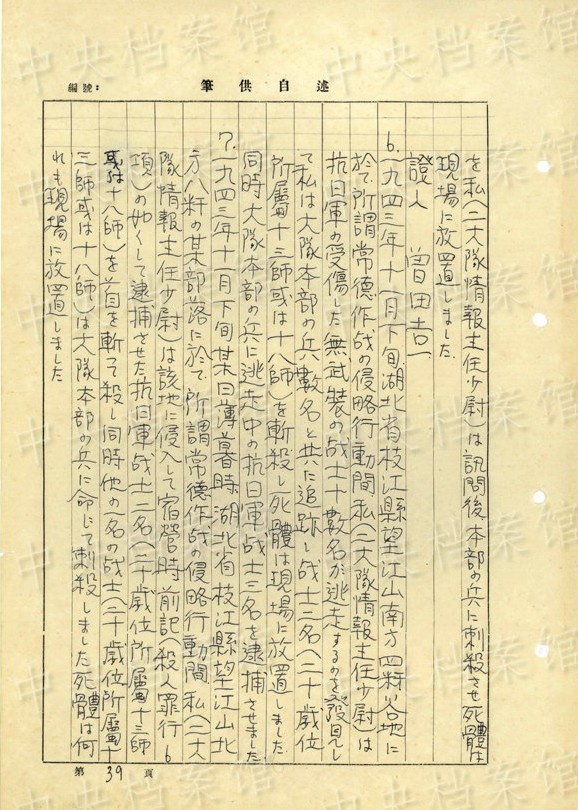 編號:
筆供自述
を私(二大隊情報主任少尉)は訊問後本部の兵に刺殺させ死體は
現場に放置しました.
證人 曽田吉一
6.一九四三年十一月下旬湖北省枝江縣望江山南方四粁谷地に
於て所謂常德作战の侵略行動間私(二大隊情報主任少尉)は
抗日軍の受傷した無武装の战士十數名が逃走するのを發見し
て私は大隊本部の兵數名と共に追跡し战士二名(二十歲位
所屬十三師或は十八師)を斬殺し死體は現場に放置しました.
同時大隊本部の兵に逃走中の抗日軍战士三名を逮捕させました
7.一九四三年十一月下旬某日薄暮時湖北省枝江縣望江山北
方八粁の某部落に於て所謂常德作战の侵略行動間私(二大
隊情報主任少尉)は該地に侵入して宿營時前記(殺人罪行6
項)の如くして逮捕させた抗日軍战士二名(二十歲位所屬十三師
或は十八師)を首を斬って殺し同時他の一名の战士(二十歲位所屬十
三師或は十八師)は大隊本部の兵に命じて刺殺しました死體は何
れも現場に放置しました
第39頁
中央档案馆